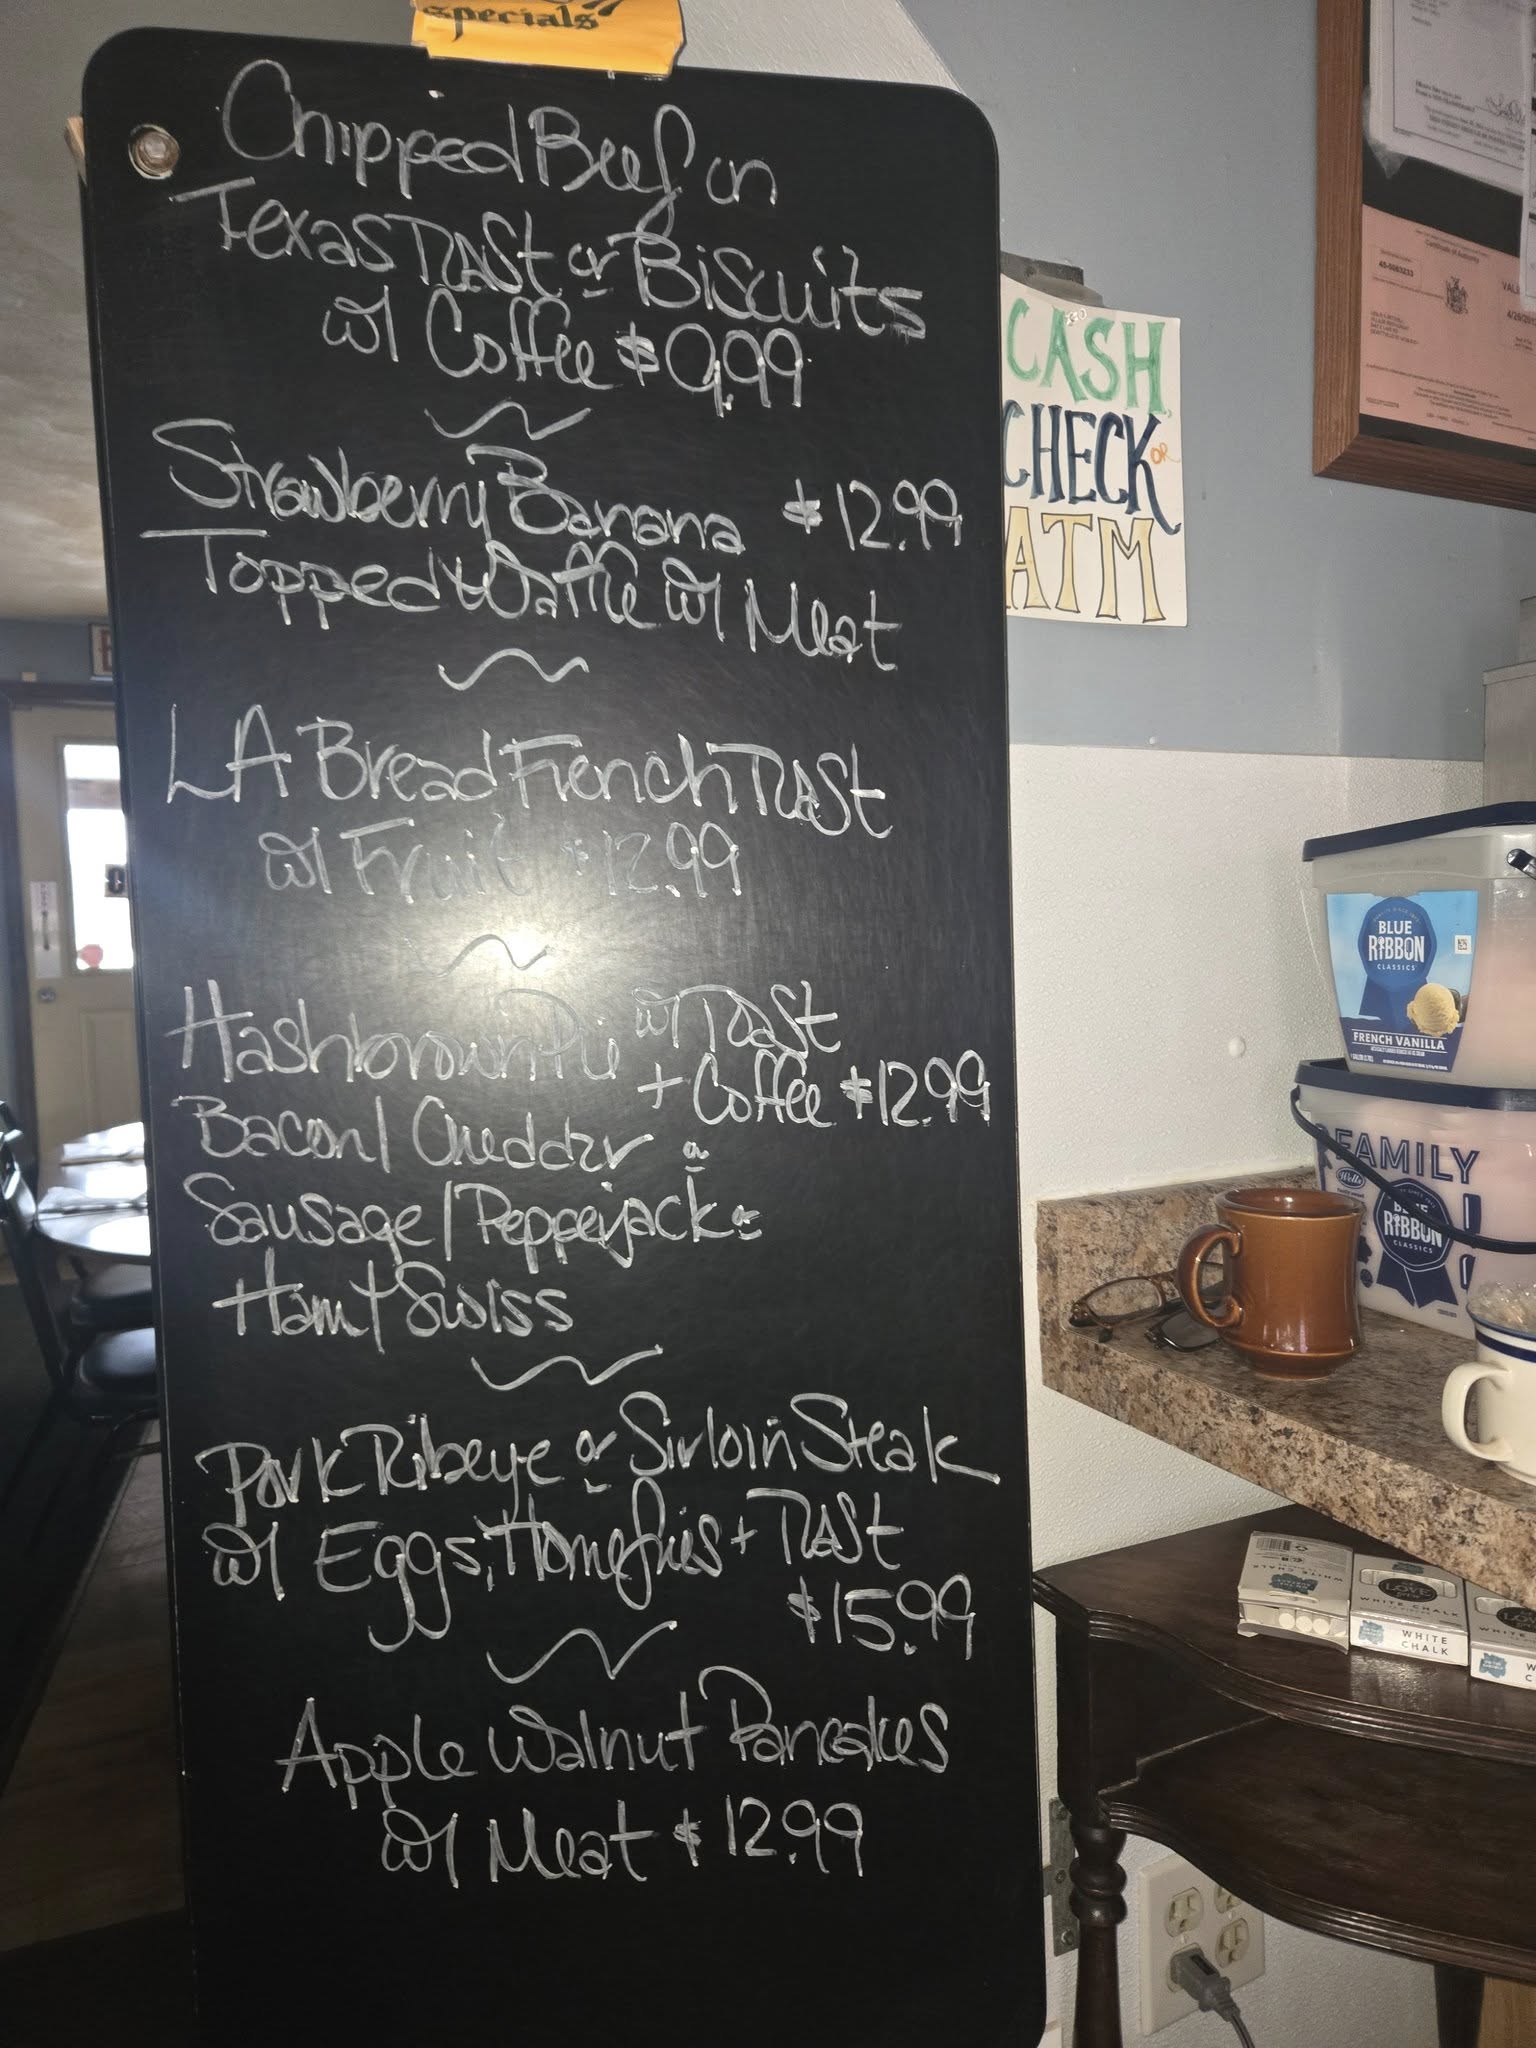 specials
Chipped Beef on
Texas Toast or Biscuits
w/ Coffee $9.99
Strawberry Banana $12.99
Topped Waffle w/ Meat
LA Bread French Toast
w/ Fruit $12.99
Hashbrown Pie w/ Toast
+ Coffee $12.99
Bacon/Cheddar or
Sausage/Pepperjack or
Ham/Swiss
Pork Ribeye or Sirloin Steak
w/ Eggs, Homefries + Toast
$15.99
Apple Walnut Pancakes
w/ Meat $12.99
CASH
CHECK OR
ATM
Certificate of Authority
BLUE
RIBBON
CLASSICS
FRENCH VANILLA
FAMILY
Wells
BLUE
RIBBON
CLASSICS
WHITE CHALK
LOVE
WHITE CHALK
WHITE
CHALK